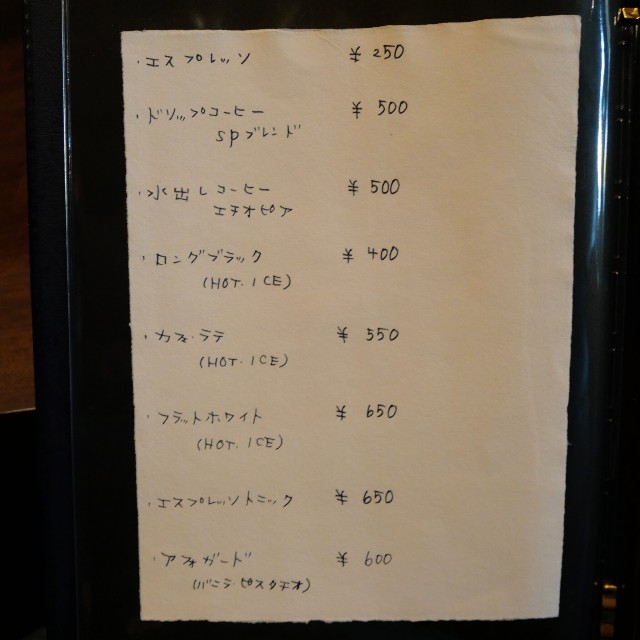 ・エスプレッソ ¥ 250
・ドリップコーヒー ¥ 500
spブレンド
・水出しコーヒー ¥ 500
エチオピア
・ロングブラック ¥ 400
(HOT. ICE)
・カフェ・ラテ ¥ 550
(HOT. ICE)
・フラットホワイト ¥ 650
(HOT. ICE)
・エスプレッソトニック ¥ 650
・アフォガード ¥ 600
(バニラ ピスタチオ)